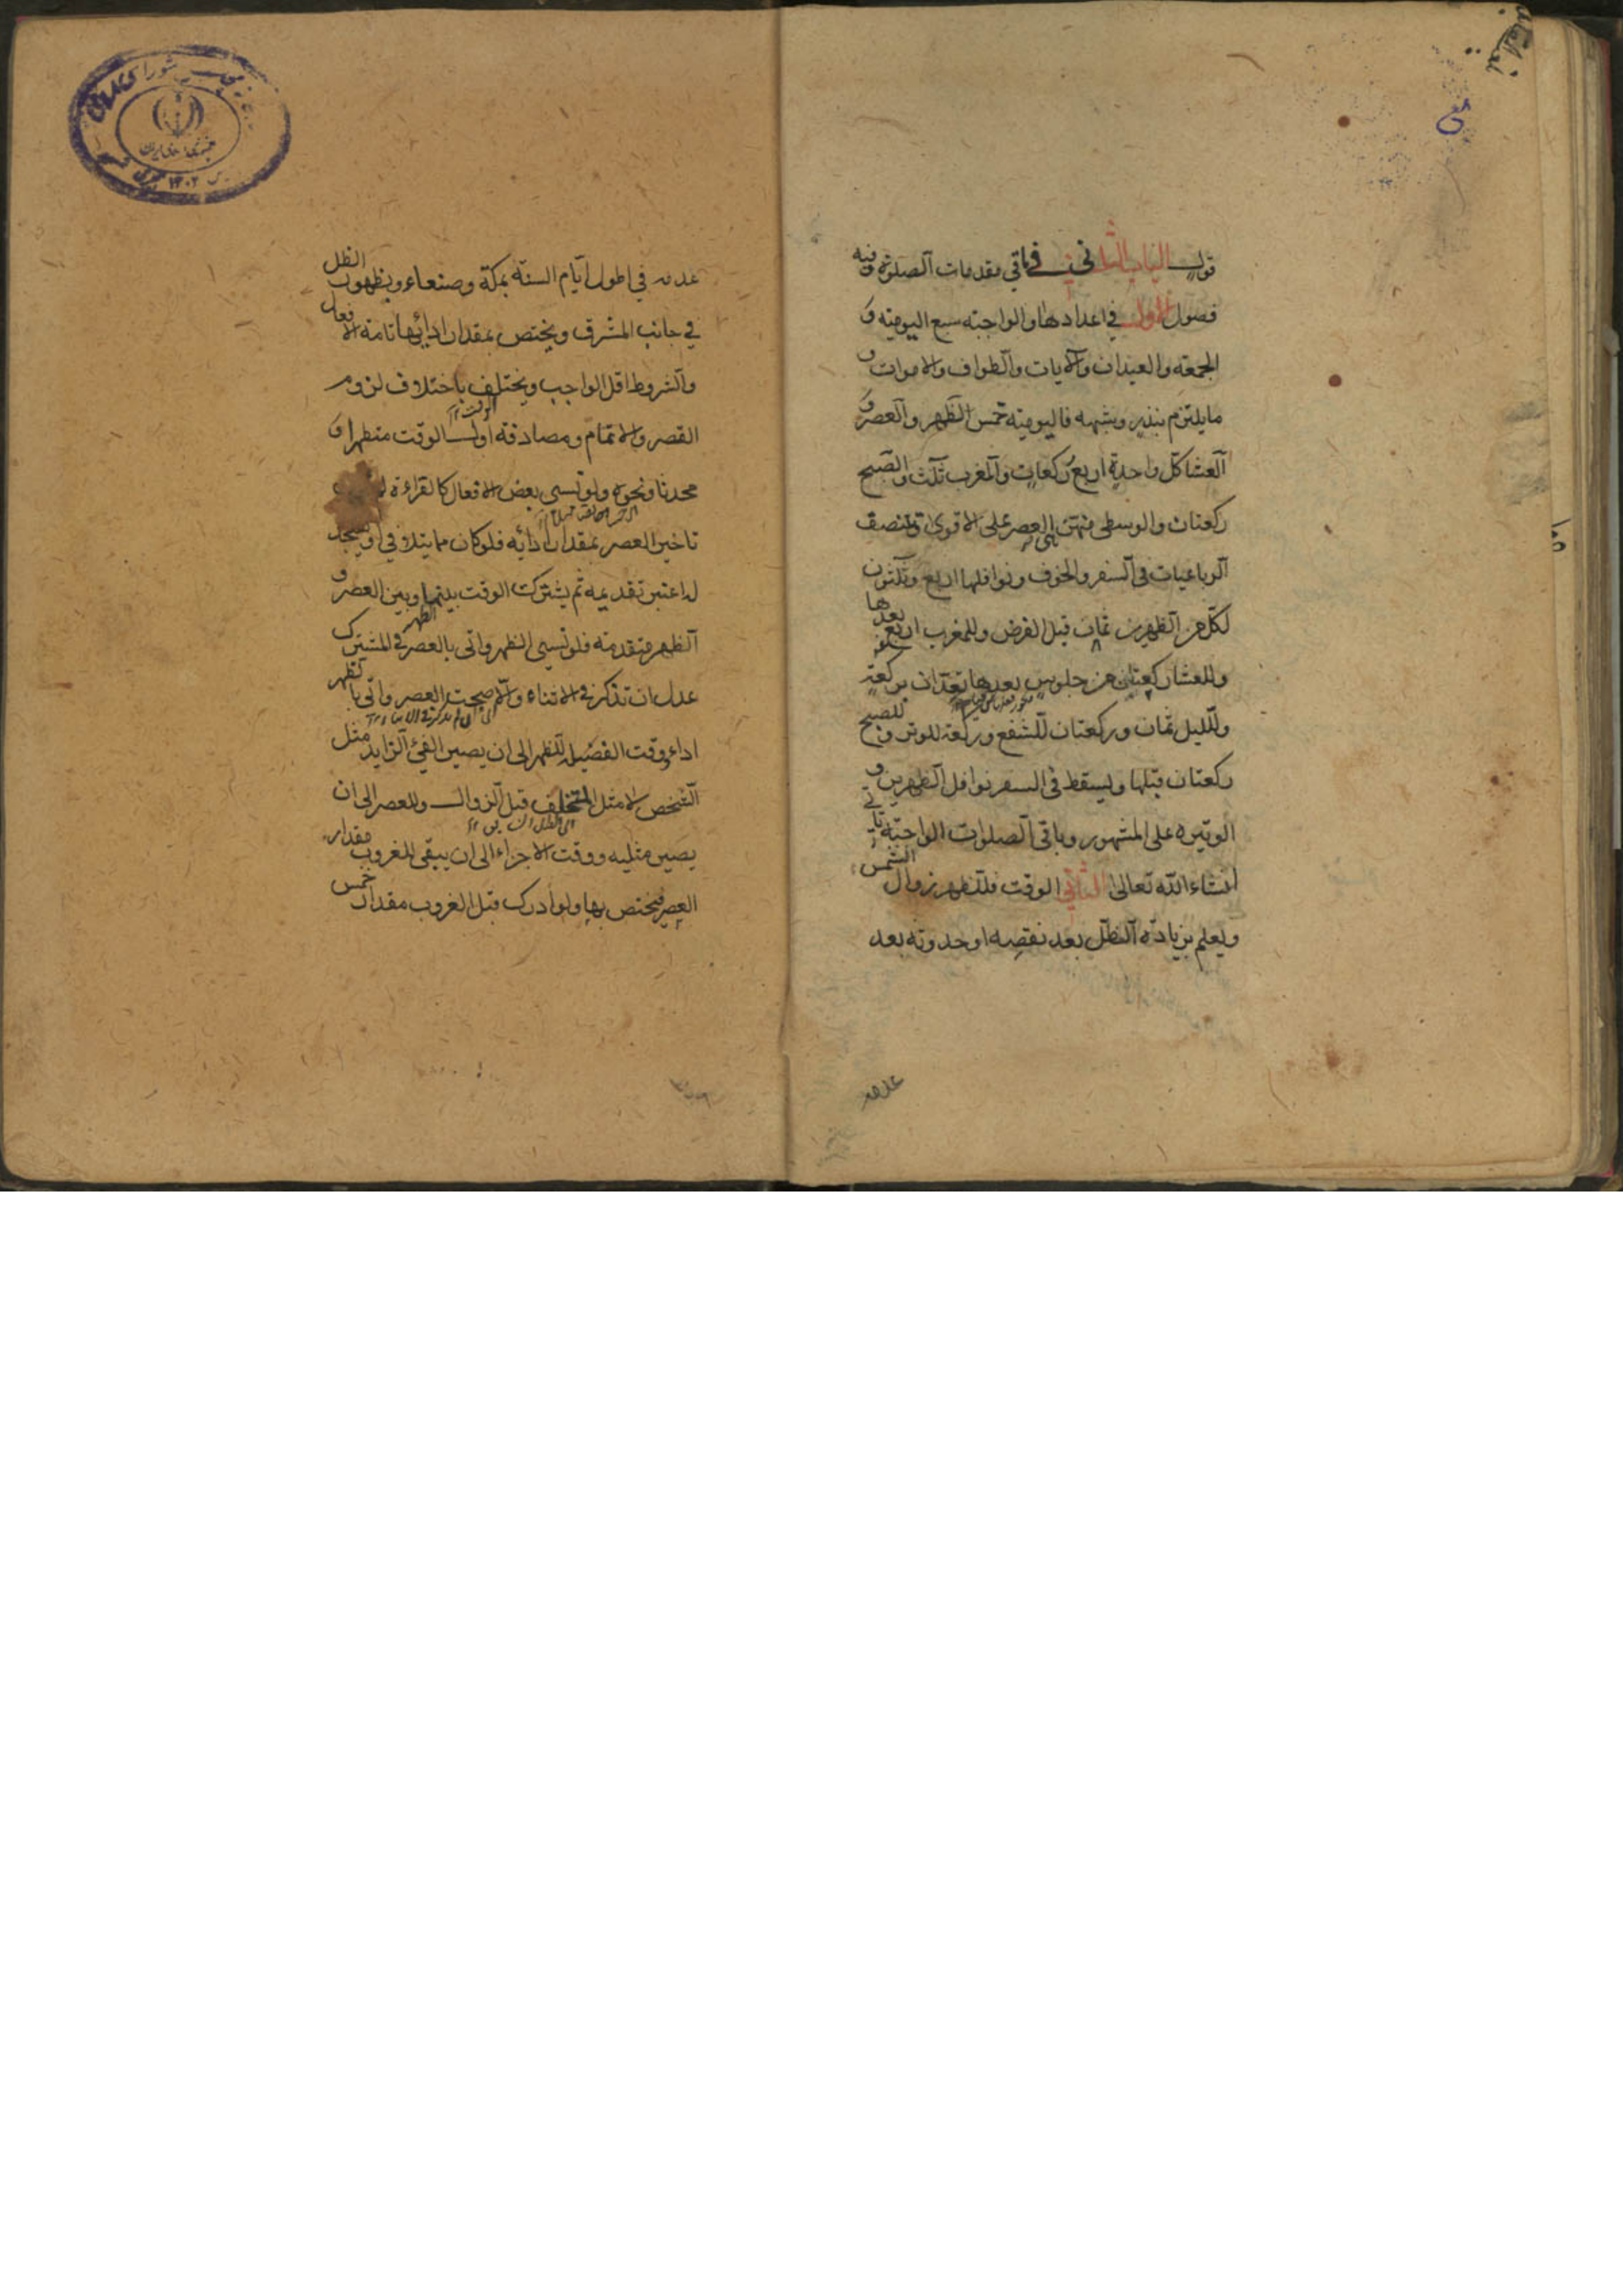 قول الباب الثانى فى باقي مقدمات الصلوة وفيه
فصول الاول في اعدادها والواجبة سبع اليومية و
الجمعة والعيدان والآيات والطواف والاموات و
ما يلتزم بنذر وشبهه فاليومية خمس الظهر والعصر و
العشا كل واحدة اربع ركعات والمغرب ثلث والصبح
ركعتان والوسطى منهن العصر على الاقوى وتنصف
الرباعيات فى السفر والخوف ونوافلها اربع وثلثون
لكل من الظهرين ثمان قبل الفرض وللمغرب اربع بعدها
وللعشا ركعتان من جلوس بعدها تعدان بركعة
ولليل ثمان وركعتان للشفع وركعة للوتر وللصبح
ركعتان قبلها ويسقط فى السفر نوافل الظهرين و
الوتيره على المشهور وباقى الصلوات الواجبة تاتي
انشاء الله تعالى الثاني الوقت فللظهر زوال الشمس
ويعلم بزيادة الظل بعد نقصه او حدوثه بعد
عدمه
عدمه في اطول ايام السنة بمكة وصنعاء وبظهور الظل
في جانب المشرق ويختص بمقدار ادائها تامة الافعال
والشروط اقل الواجب ويختلف باختلاف لزوم
القصر والاتمام ومصادفة اول الوقت متطهرا و
محدثا ونحوه ولو نسي بعض الافعال كالقراءة
تاخير العصر بمقدار ادائه فلو كان مما يتلافي او يسجد
له اعتبر تقديمه ثم يشترك الوقت بينها وبين العصر و
الظهر متقدمة فلو نسي الظهر واتى بالعصر في المشترك
عدل ان تذكر في الاثناء والا صحت العصر واتى بالظهر
اداء ووقت الفضيلة للظهر الى ان يصير الفئ الزايد مثل
الشخص لا مثل المتخلف قبل الزوال وللعصر الى ان
يصير مثليه ووقت الاجزاء الى ان يبقى للغروب مقدار
العصر فيختص بها ولو ادرك قبل الغروب مقدار خمس